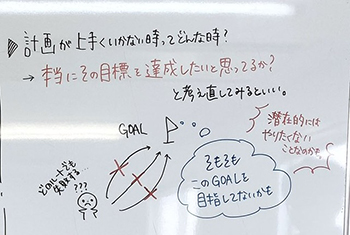 計画が上手くいかない時ってどんな時?
→ 本当にその目標を達成したいと思ってるか?
と考え直してみるといい。
潜在的には
やりたくない
ことなのかも
GOAL
どのルートでも
失敗する…
???
そもそも
このGOALを
目指してないかも